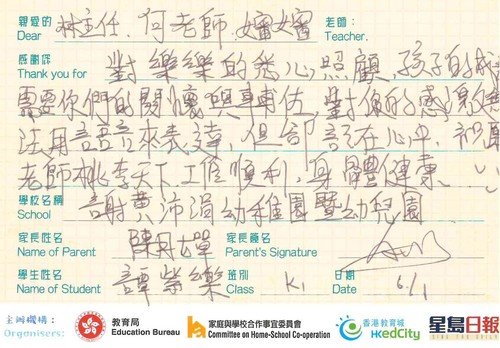 親愛的 林主任、何老師、嬸嬸 老師：
Dear Teacher,
感謝您 對樂樂的悉心照顧，孩子的成
Thank you for
需要你們的關懷與輔佐，對您的感謝
法用語言來表達，但卻記在心中，祝
老師桃李天下，工作順利，身體健康。
學校名稱
School 謝黃沛涓幼稚園暨幼兒園
家長姓名 家長簽名
Name of Parent Parent's Signature
學生姓名 譚 樂 班別 日期
Name of Student Class K1 Date 6/1
主辦機構：
Organisers:
教育局
Education Bureau
家庭與學校合作事宜委員會
Committee on Home-School Co-operation
香港教育城
HKedCity
星島日報
SING TAO DAILY